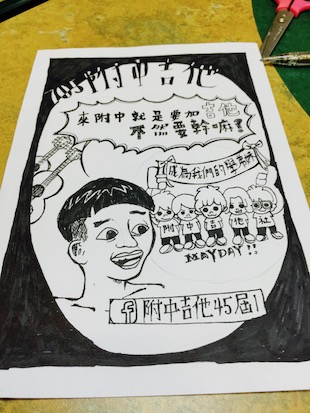 附中吉他
來附中就是要加吉他
不然要幹嘛
成為我們的學
附中吉他社
MAYDAY!!
附中吉他45屆